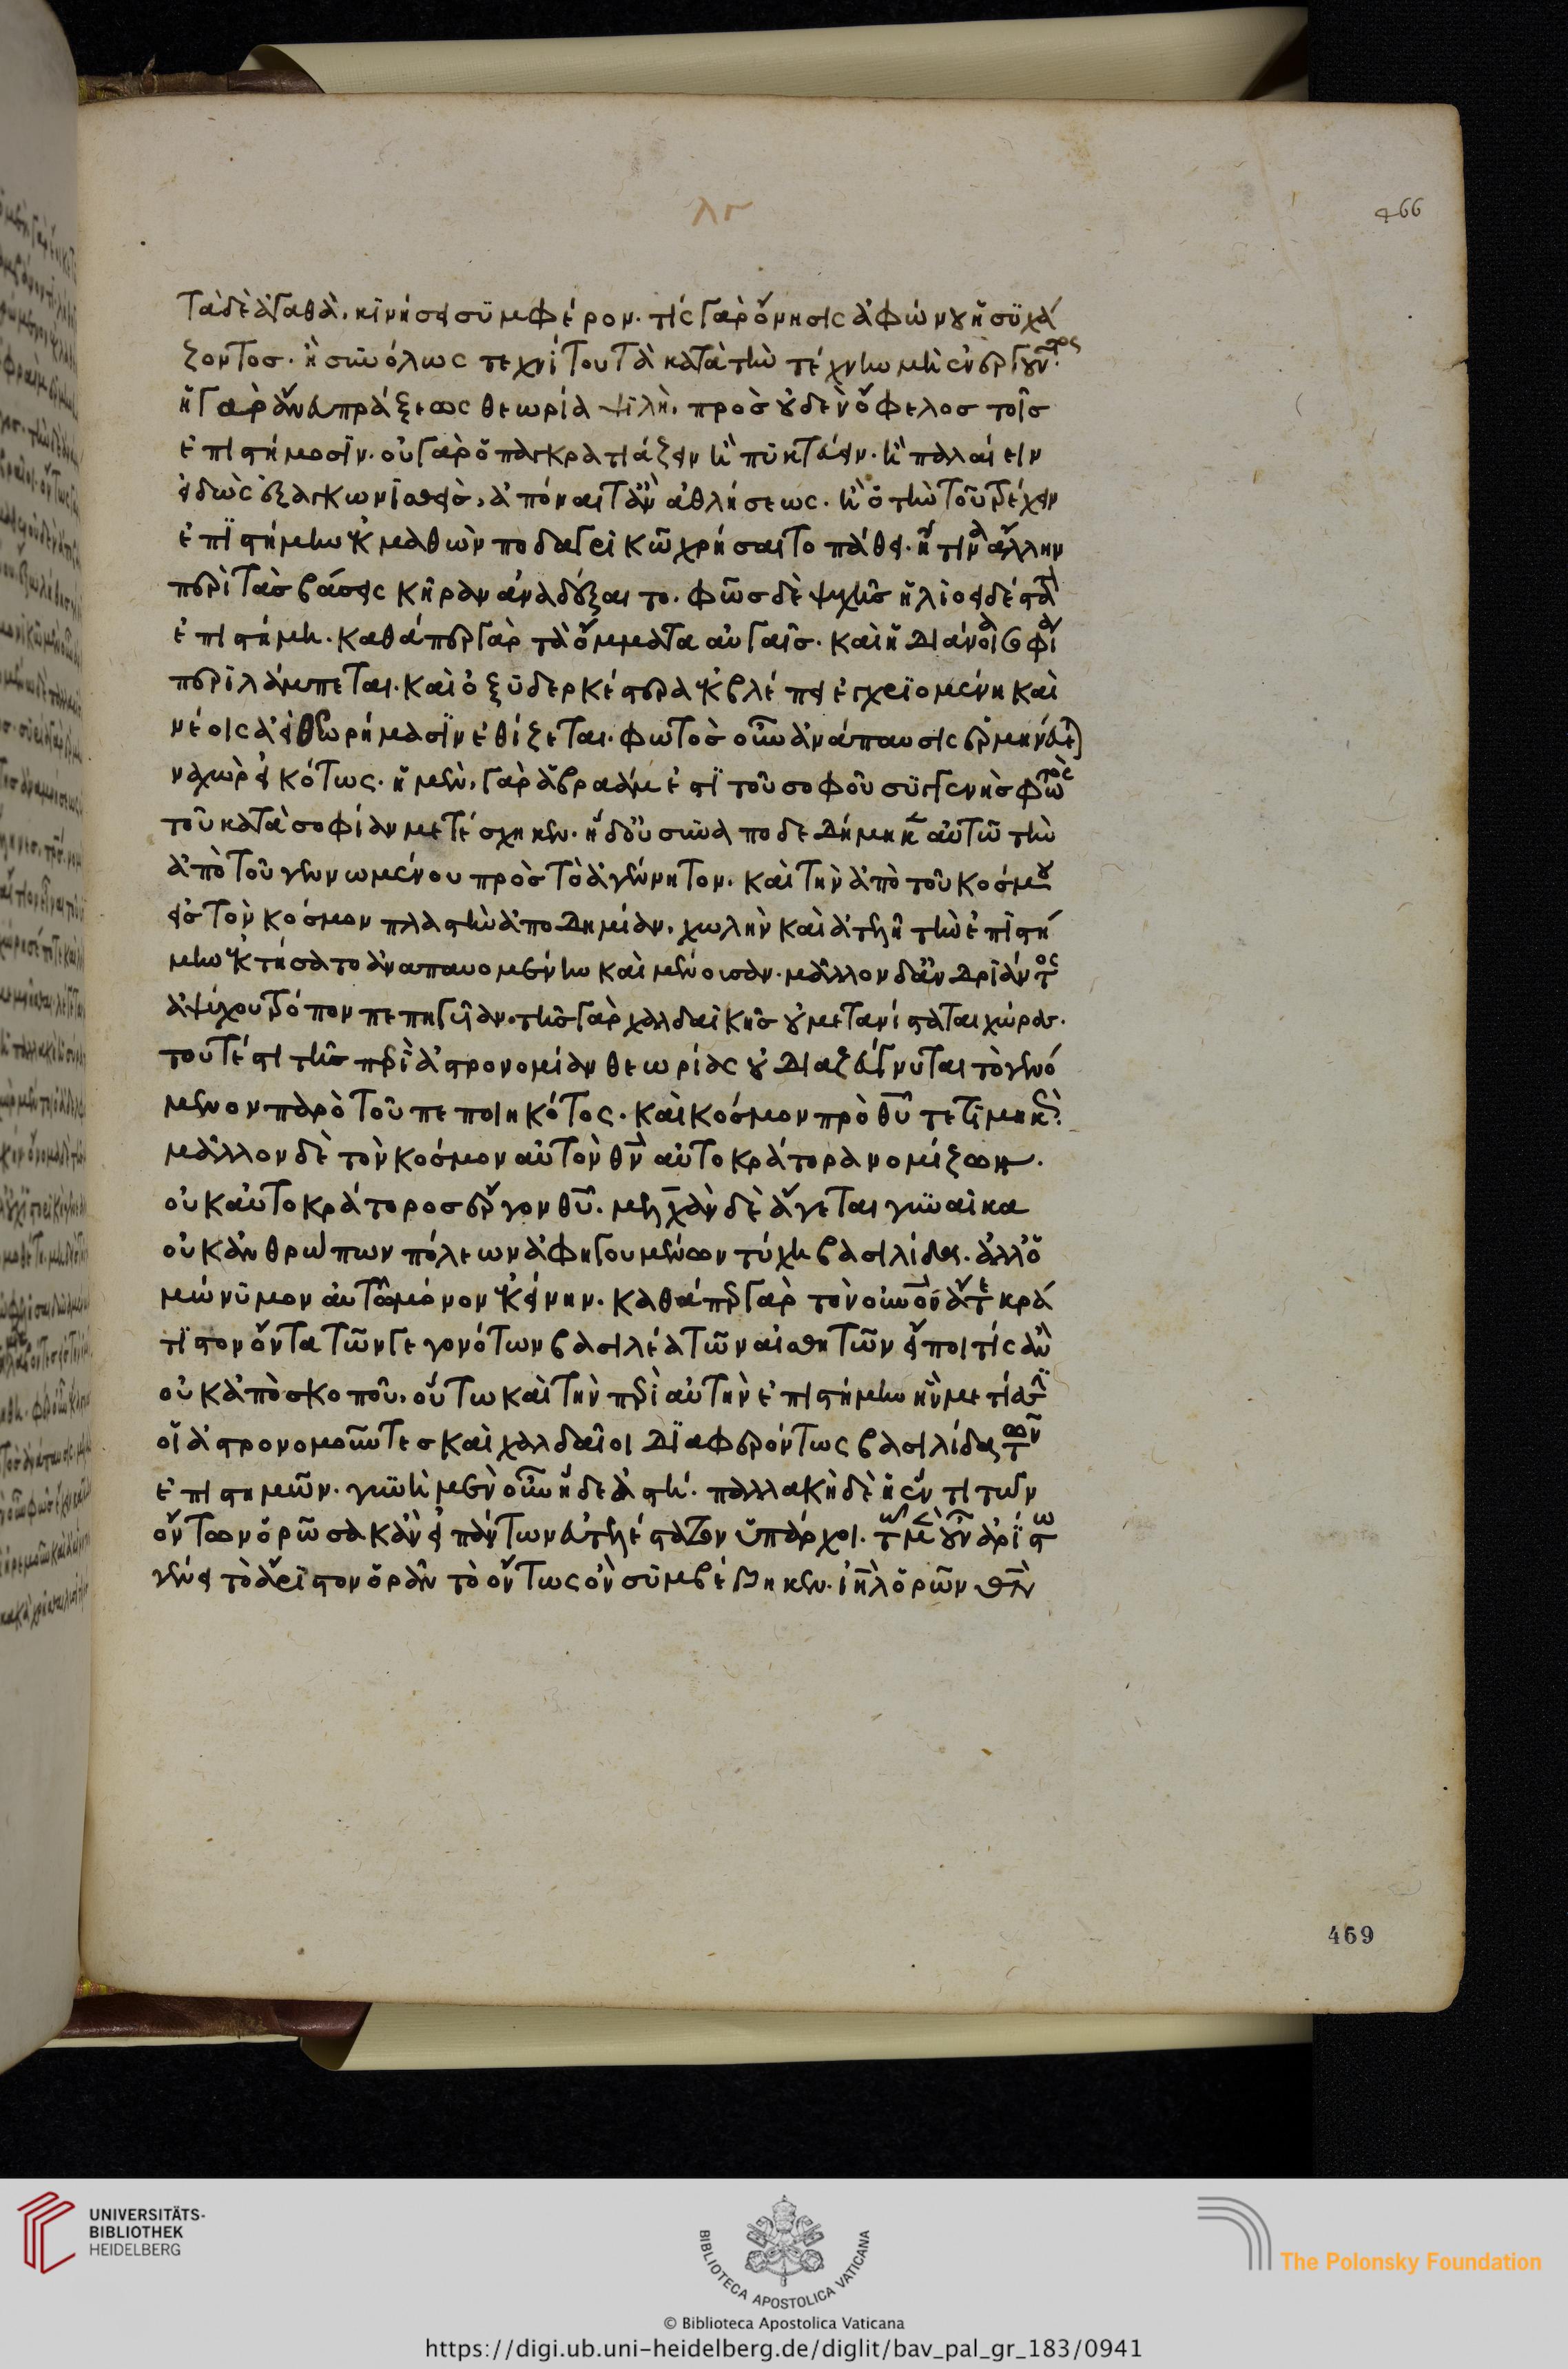 λγ
466
τὰ δὲ ἀγαθά, κινήσει συμφέρον. τίς γὰρ ὄνησις ἀφώνου ἡσυχά
ζοντος. ἢ συνόλως τεχνίτου τὰ κατὰ τὴν τέχνην μὴ ἐνεργοῦντος
ἡ γὰρ ἄνευ πράξεως θεωρία ψιλή, πρὸς οὐδὲν ὄφελος τοῖς
ἐπιστήμοσιν. οὐ γὰρ ὁ παγκρατιάζειν ἢ πυκτεύειν. ἢ παλαίειν
εἰδὼς ἐξαγκωνισθεὶς, ἀπόναιτ' ἂν ἀθλήσεως. ἢ ὁ τὴν τοῦ τρέχειν
ἐπιστήμην ἐκμαθὼν ποδαγρικῶ χρήσαιτο πάθει. ἤ τινα ἄλλην
περὶ τὰς βάσεις κῆραν ἀναδέξαιτο. φῶς δὲ ψυχῆς ἡλιοειδέστατον
ἐπιστήμη. καθάπερ γὰρ τὰ ὄμματα αὐγαῖς. καὶ ἡ διάνοια σοφία
περιλάμπεται. καὶ ὀξυδερκέστερα ἐκβλέπειν ἐγχριομένη καὶ
νέοις ἀεὶ θεωρήμασιν ἐθίζεται. φωτὸς οὖν ἀνάπαυσις ἑρμηνεύεται
ναχὼρ εἰκότως. ἡ μὲν, γὰρ ἀβραάμ ἐστι τοῦ σοφοῦ συγγενὴς φωτὸς
τοῦ κατὰ σοφίαν μετέσχηκεν. ἡ δ' οὐ συναποδεδήμηκεν αὐτῶ τὴν
ἀπὸ τοῦ γενομένου πρὸς τὸ ἀγένητον. καὶ τὴν ἀπὸ τοῦ κόσμου
εἰς τὸν κόσμον πλαστὴν ἀποδημίαν, χωλὴν καὶ ἀτελῆ τὴν ἐπιστή
μην ἐκτήσατο ἀναπαυομένην καὶ μένουσαν. μᾶλλον δ' ἀνδριάντος
ἀψύχου τρόπον πεπηγυῖαν. τῆς γὰρ χαλδαϊκῆς οὐ μετανίσταται χώρας.
τουτέστι τῆς περὶ ἀστρονομίαν θεωρίας οὐ διαζεύγνυται τὸ γενό
μενον παρὸ τοῦ πεποιηκότος. καὶ κόσμον πρὸ θυ τετίμηκε.
μᾶλλον δὲ τὸν κόσμον αὐτὸν θν αὐτοκράτορα νομίζων.
οὐκ αὐτοκράτορος ἔργον θυ. μελχὰν δὲ ἄγεται γυναῖκα
οὐκ ἀνθρώπων πόλεων ἀφηγουμένων τύχη βασιλίδα. ἀλλ' ὁ
μώνυμον αὐτὸ μόνον ἐκείνην. καθάπερ γὰρ τὸν οὐρανὸν ἅτε κρά
τιστον ὄντα τῶν γεγονότων βασιλέα τῶν αἰσθητῶν εἴποι τίς ἂν
οὐκ ἀπὸ σκοποῦ, οὕτω καὶ τὴν περὶ αὐτὴν ἐπιστήμην ἣν μετίασιν
οἱ ἀστρονομοῦντες καὶ χαλδαῖοι διαφερόντως βασιλίδα τῶν
ἐπιστημῶν. γυνὴ μὲν οὖν ἥδε ἀστή. παλλακὴ δὲ ἡ ἕν τι τῶν
ὄντων ὁρῶσα κἂν εἰ πάντων εὐτελέστατον ὑπάρχοι. τῶ μὲν οὖν ἀρίστω
γένει τὸ ἄριστον ὁρᾶν τὸ ὄντως ὂν συμβέβηκεν. ιηλ ὁρῶν θν
469
UNIVERSITÄTS-
BIBLIOTHEK
HEIDELBERG
BIBLIOTECA APOSTOLICA VATICANA
The Polonsky Foundation
© Biblioteca Apostolica Vaticana
https://digi.ub.uni-heidelberg.de/diglit/bav_pal_gr_183/0941